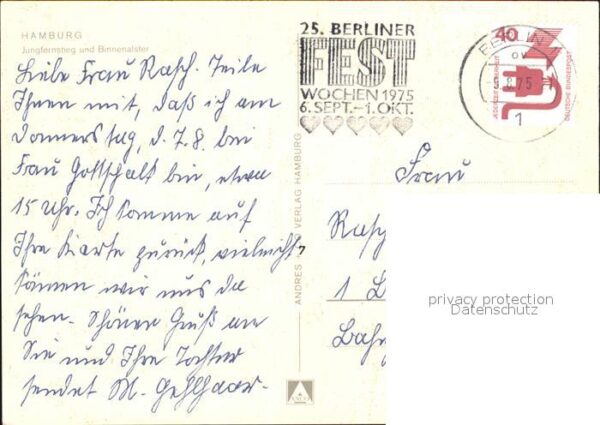 HAMBURG
Jungfernstieg und Binnenalster
Liebe Frau Rasch. Teile
Ihnen mit, daß ich am
Donnerstag, d. 7.8. bei
Frau Gottschalt bin, etwa
15 Uhr. Ich komme auf
Ihre Karte zurück, vielleicht
können wir uns da
sehen. Schönen Gruß an
Sie und Ihre Tochter
sendet M. Gehlhaar.
7
ANDRES VERLAG HAMBURG
25. BERLINER
FEST
WOCHEN 1975
6. SEPT.–1. OKT.
BERLIN
8.75
1
40
JEDERZEIT SICHERHEIT
DEUTSCHE BUNDESPOST
Frau
1
privacy protection
Datenschutz